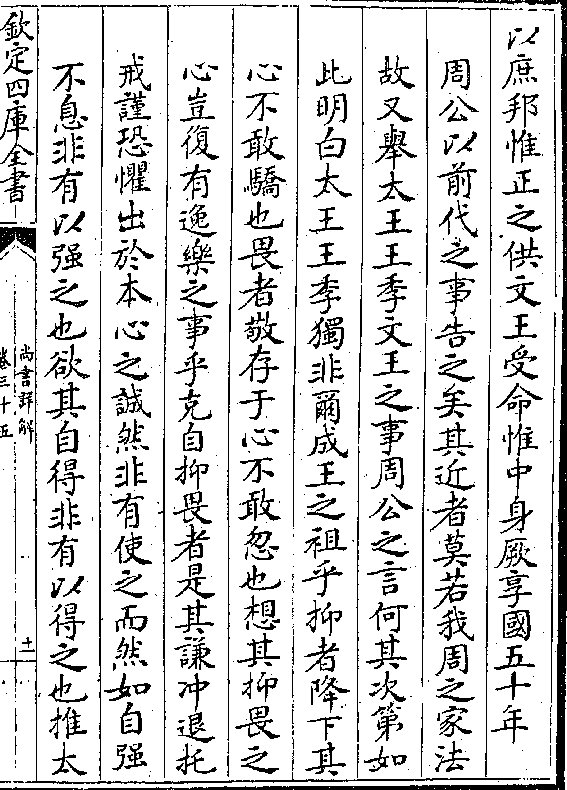 以庶邦惟正之供文王受命惟中身厥享國五十年
周公以前代之事告之矣其近者莫若我周之家法
故又舉太王王季文王之事周公之言何其次第如
此明白太王王季獨非爾成王之祖乎抑者降下其
心不敢驕也畏者敬存于心不敢忽也想其抑畏之
心豈復有逸樂之事乎克自抑畏者是其謙冲退托
戒謹恐懼出於本心之誠然非有使之而然如自強
不息非有以强之也欲其自得非有以得之也推太
欽定四庫全書
尚書詳解
卷三十五
十一